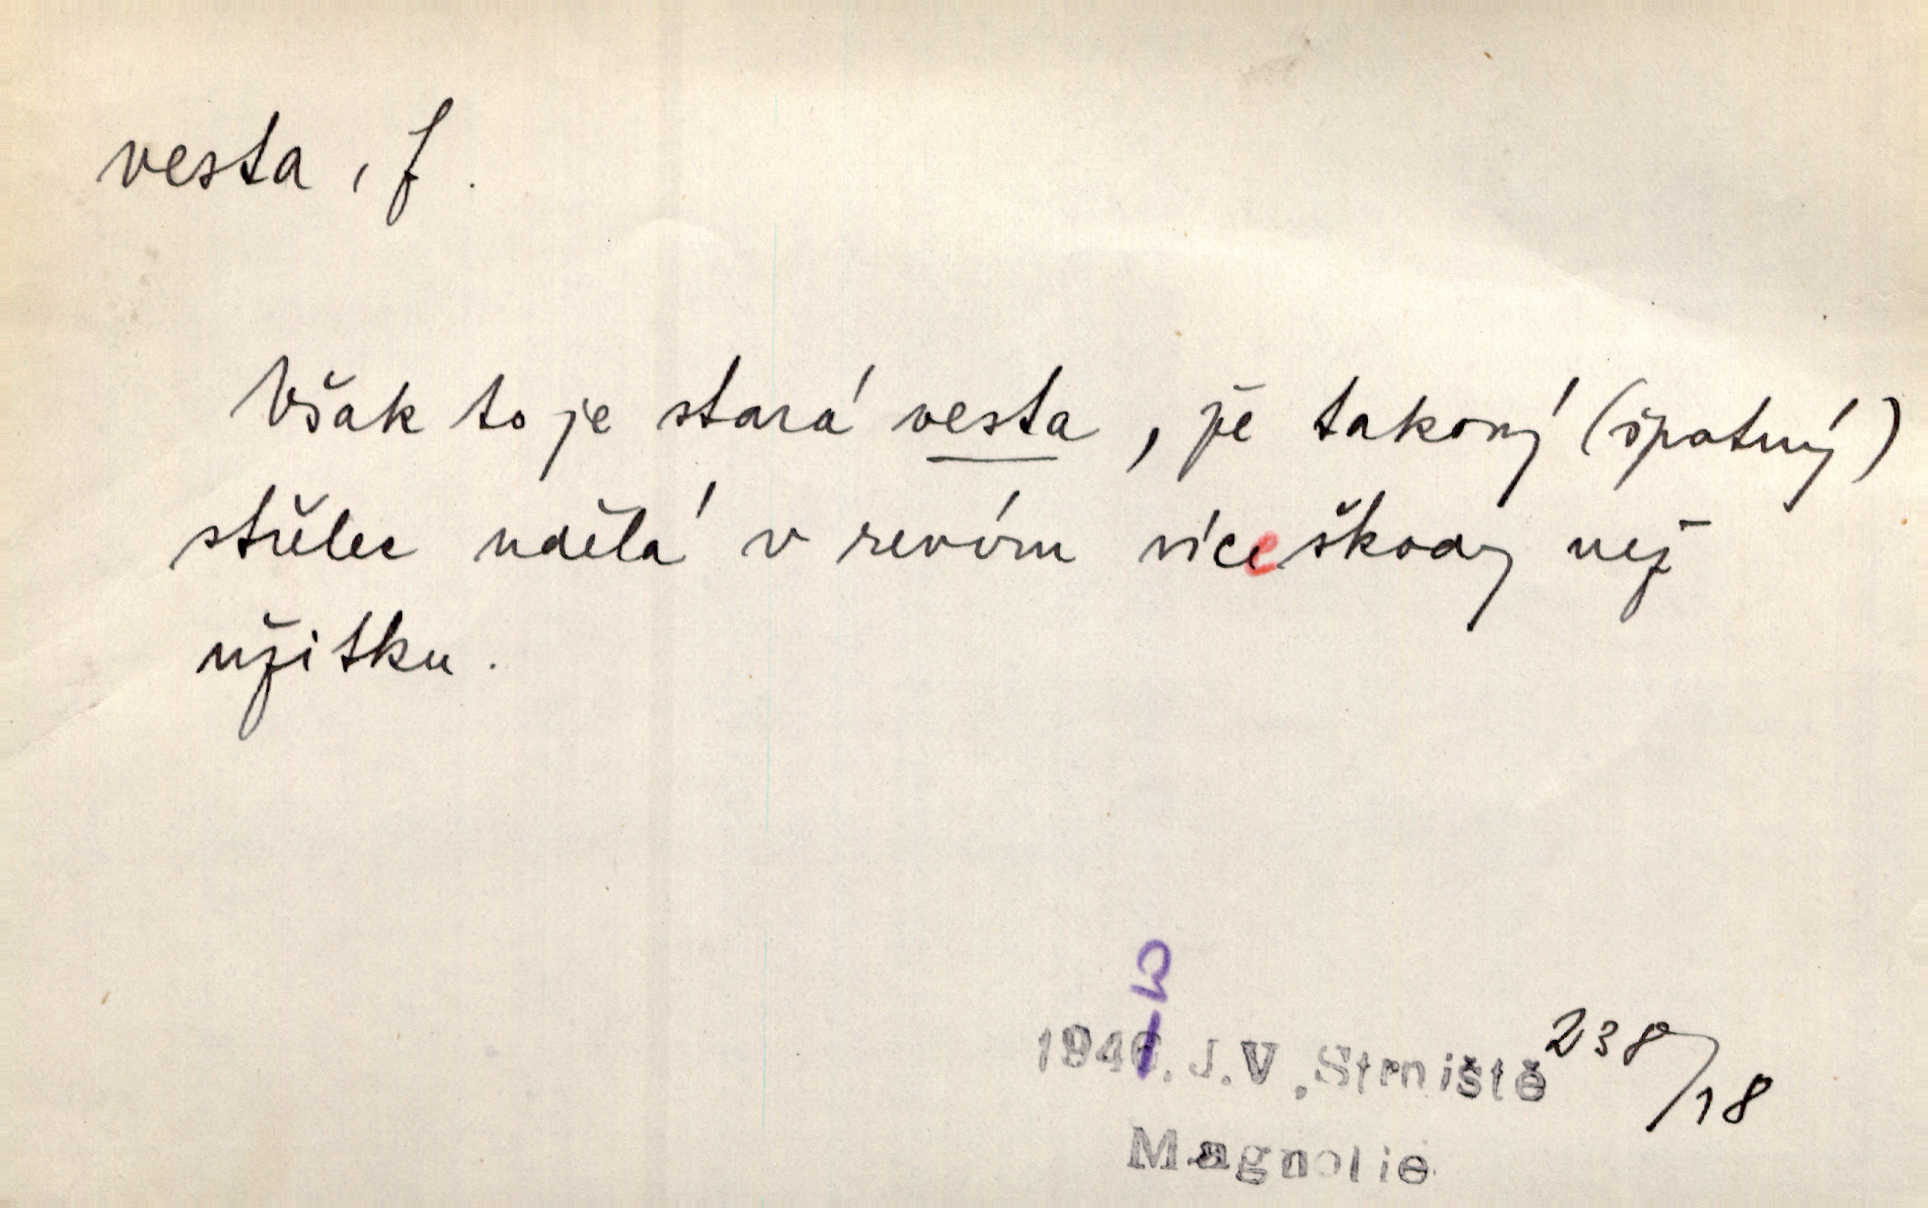 vesta, f.
Však to je stará vesta, že takový (špatný)
střelec udělá v revíru více škody než
užitku.
5
1946. J.V. Strniště 238/18
Magnolie